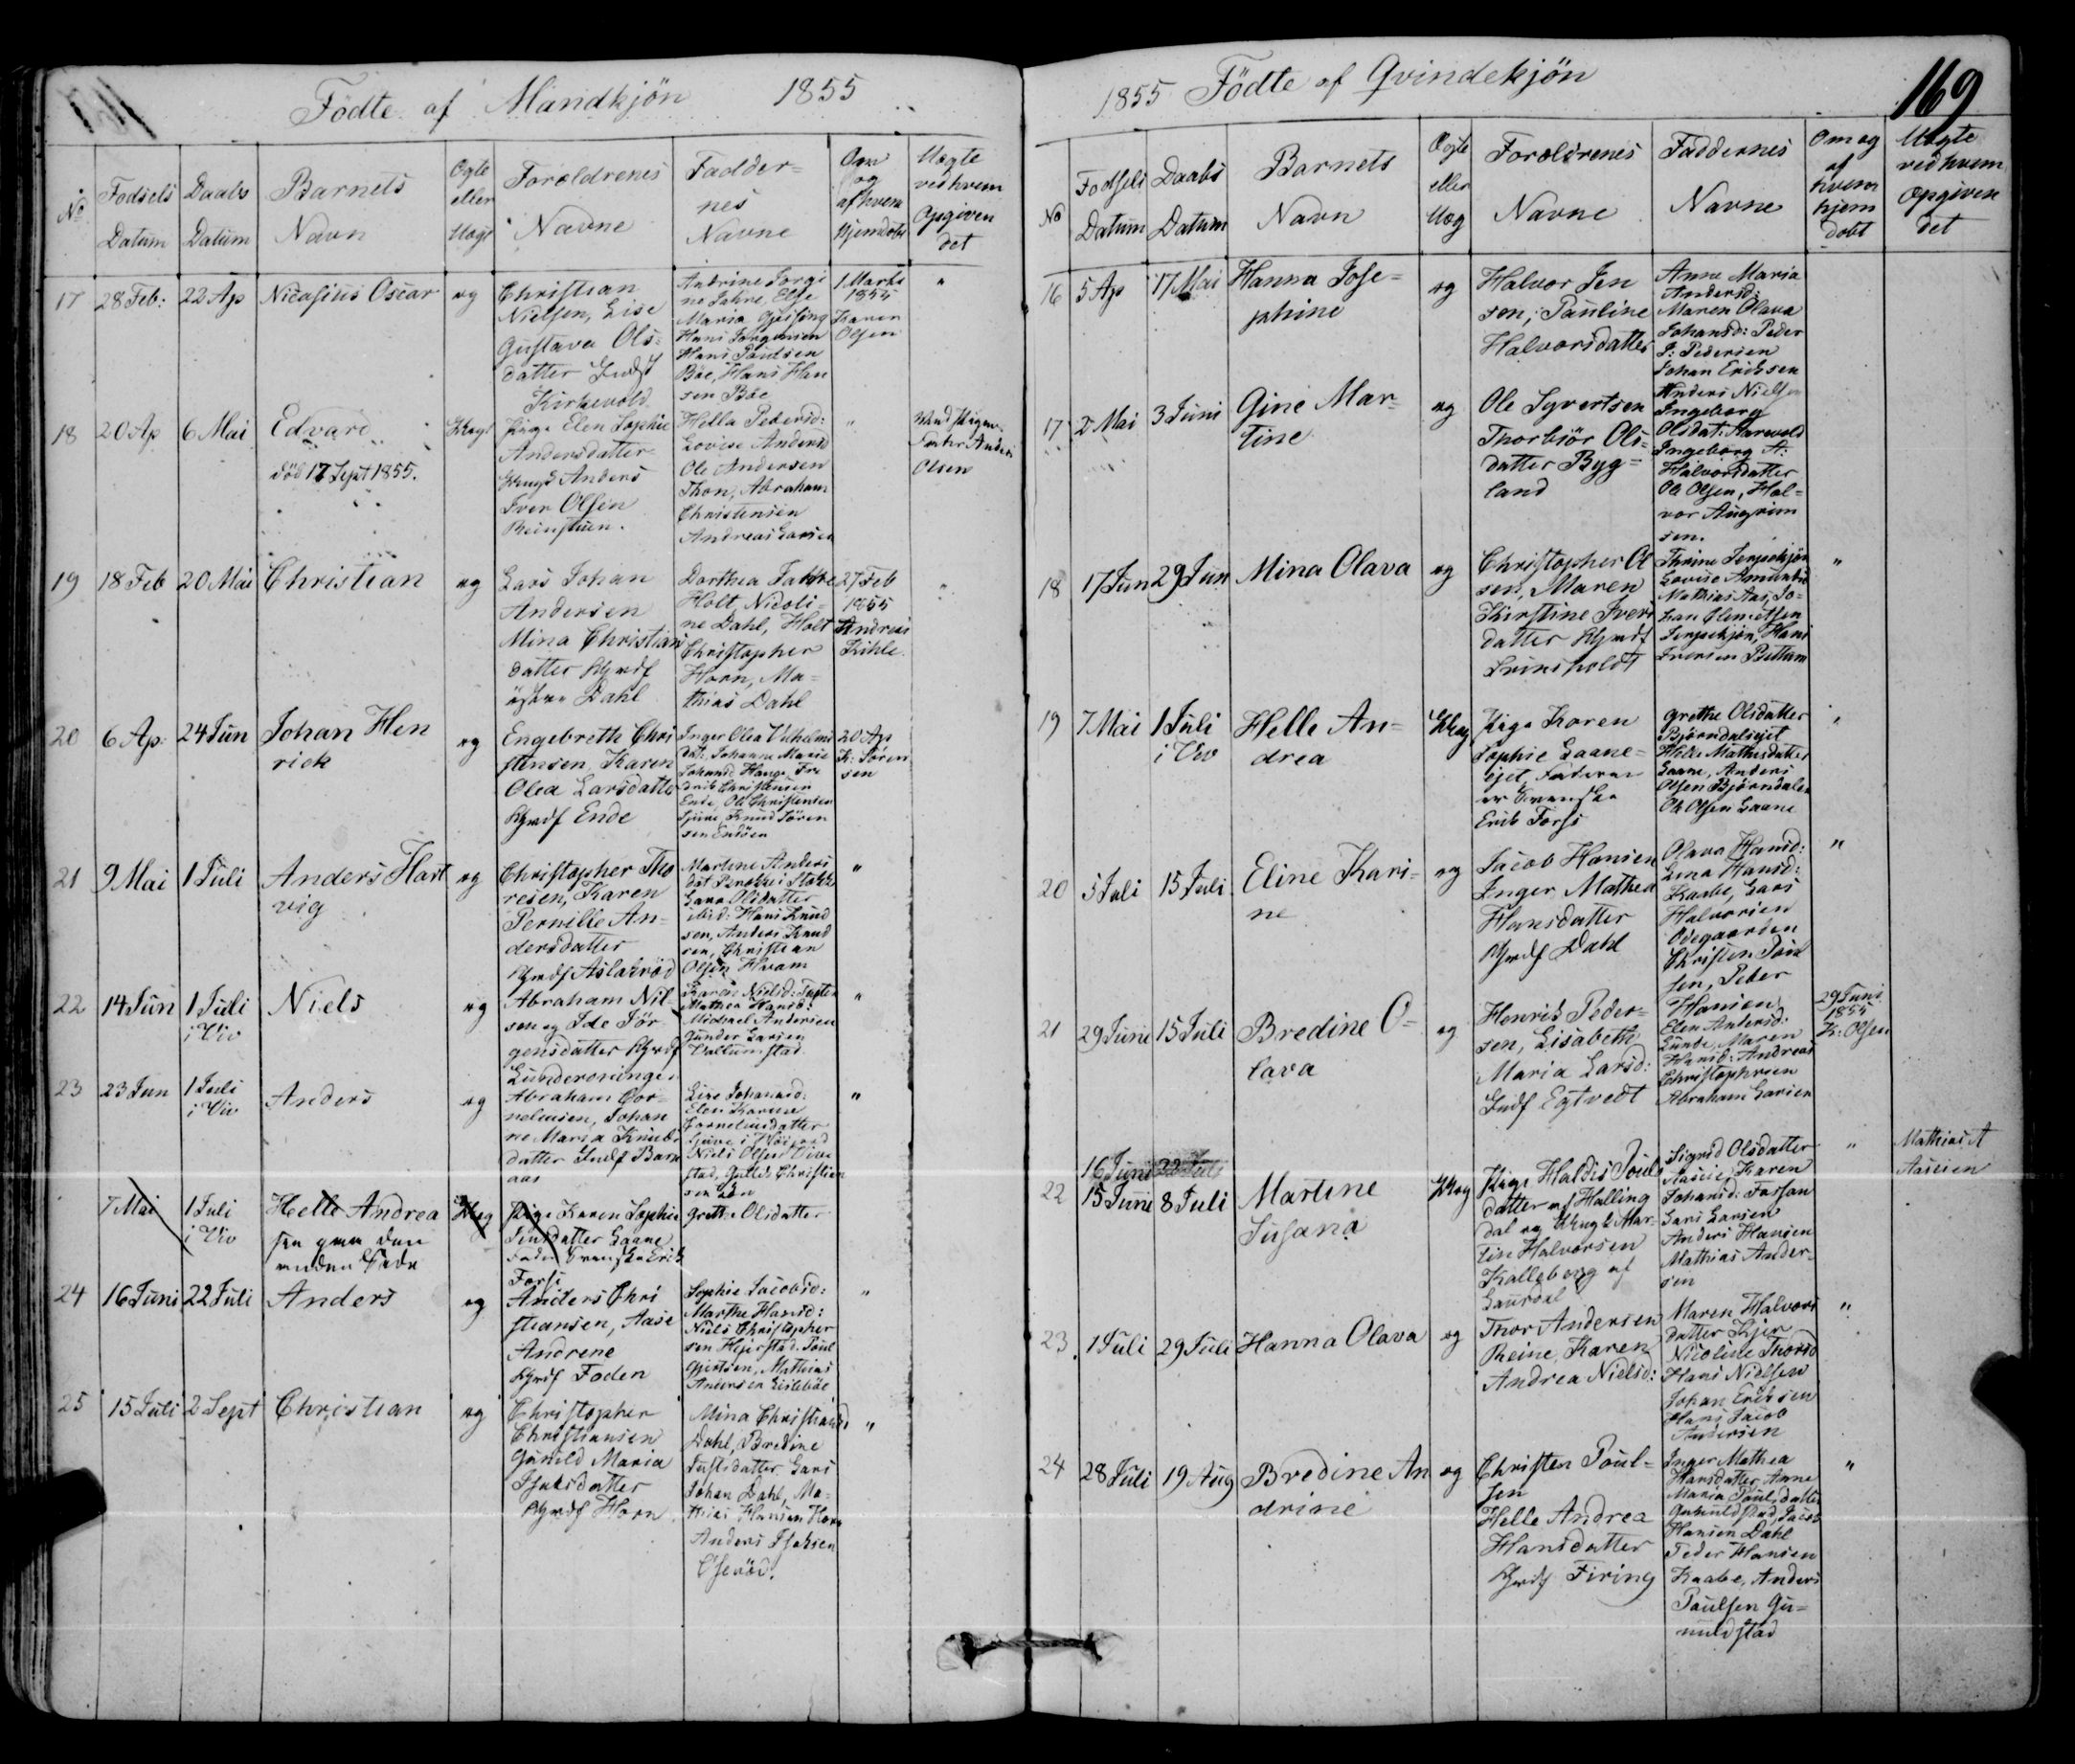 Födte af Mandkjön 1855
No
Fødsels Datum
Daabs Datum
Barnets Navn
Ægte eller Uægt
Forældrenes Navne
Fadder=
nes
Navne
Om og af hvem hjemdöbt
Uægte ved hvem Opgiven det
17 28 Feb: 22 Ap Nicasius Oscar æg
Christian
Nielsen, Lise
Gustava Ols=
datter
Kirkevold
Maria
Hans Jørgensen
Hans Poulsen
Böe, Hans Han
sen Böe
1 Marts
1855
Karen
Olsen
"
18 20 Ap 6 Mai Edvard
död 17 Sept 1855.
Uægt
Pige Elen Sophie
Andersdatter
Ungk Anders
Iver Olsen
Hella Pedersd:
Lovise Andersd
Ole Andersen
Thon, Abraham
Christensen
Andreas Larsen
"
Anders
Olsen
19 18 Feb 20 Mai Christian æg
Lars Johan
Andersen
Mina Christians
datter Gmdf
östre Dahl
Dorthea
Holt, Nicoli=
ne Dahl, Holt
Christopher
Horn, Ma=
thias Dahl
27 Feb
1855
Andreas
Kihle
"
20 6 Ap: 24 Jun Johan Hen
rick
æg
Engebreth Chri
stensen, Karen
Olea Larsdatter
Gmdf Ende
Inger Olea Vilhelms
dat: Johanna Marie
Johansd Hauge Fre
drik Christensen
Ende, Ole Christensen
Knud Sören
sen
20 Ap
K: Sören
sen
21 9 Mai 1 Juli Anders Hart
vig
æg
Christopher Tho
resen, Karen
Pernille An=
dersdatter
Gmdf Aslakrød
Martine Anders
dat
Olsdatter
ibid: Hans Knud
sen, Anders Knud
sen, Christian
Olsen Hvam
"
22 14 Jun 1 Juli
i Viv
Niels æg
Abraham Nil=
sen og Ide Jör
gensdatter Gmdf
Karen Nielsd:
Mathea Hansd:
Michael Andersen
Gunder Larsen
Vallumstad
"
23 23 Jun 1 Juli
i Viv
Anders æg
Abraham Cor=
neliusen, Johan
ne Maria Knuds
datter Indf Barm
aas
Lise Johannsd:
Elen Karine
Corneliusdatter
Niels Olsen
stad, Christian
sen
"
7 Mai 1 Juli
i Viv
Helle Andrea
see paa den
anden Side
Uæg
Pige Karen Sophie
Jensdatter Gaane
Fader Svenske Erik
Forss
Grethe Olsdatter
24 16 Juni 22 Juli Anders æg
Anders Chri
stiansen, Aase
Andrene
Gmdf Foden
Sophie Jacobsd:
Marthe Hansd:
Niels Christopher
sen Hejerstad, Poul
Gjertsen, Mathias
Andersen
"
25 15 Juli 2 Sept Christian æg
Christopher
Christiansen
Gunild Maria
Isaksdatter
Gmdf Horn
Mina Christiansd
Dahl, Bredine
Justsdatter Lars
Johan Dahl, Ma=
thias Hansen Horn
Anders Isaksen
"
1855 Födte af Qvindekjön
169
No
Fødsels Datum
Daabs Datum
Barnets Navn
Ægte eller Uæg
Forældrenes Navne
Faddernes Navne
Om og af hvem hjem döbt
Uægte ved hvem Opgiven det
16 5 Ap 17 Mai Hanna Jose=
phine
æg
Halvor Jen
sen, Pauline
Halvorsdatter
Anne Maria
Andersd:
Maren Olava
Johansd: Peder
J: Pedersen
Johan Ericksen
Anders Nielsen
17 2 Mai 3 Juni Gine Mar=
tine
æg
Ole Syvertsen
Thorbiör Ols=
datter Byg=
land
Ingeborg
Olsdat: Aarvold
Ingeborg A:
Halvorsdatter
Ole Olsen, Hal=
vor Angrim
sen.
18 17 Jun 29 Jun Mina Olava æg
Christopher Ol
sen, Maren
Kirstine Ivers
datter Gmdf
Thrine
Lovise Amundsd
Mathias Aas, Jo=
han Clemetsen
Hans
Iversen
"
19 7 Mai 1 Juli
i Viv
Helle An=
drea
Uæg
Pige Karen
Sophie Gaane=
ejet, Faderen
er Svensken
Erik Forss
Grethe Olsdatter
Björndalsejet
Helle Mathisdatter
Gaane, Anders
Olsen Björndalen
Ole Olsen Gaane
"
20 5 Juli 15 Juli Eline Kari=
ne
æg
Jacob Hansen
Inger Mathea
Hansdatter
Gmdf Dahl
Olava Hansd:
Lina Hansd:
Kaabe, Lars
Halvorsen
Ødegaarden
Christen Poul
sen, Peder
Hansen
"
21 29 Juni 15 Juli Bredine O=
lava
æg
Henrik Peder=
sen, Lisabeth
Maria Larsd:
Indf Egtvedt
Elen Andersd:
Lunde, Maren
Hansd: Andreas
Christophersen
Abraham Larsen
29 Juni
1855
K: Olsen
16 Juni 22 Juli
22 15 Juni 8 Juli Martine
Susana
Uæg
Pige Haldis Pouls
datter af Halling
dal og Ungk Mar=
tin Halvorsen
Kalleberg af
Laurdal
Sigrid Olsdatter
Aasen, Karen
Johansd:
Lars Larsen
Anders Hansen
Mathias Ander=
sen
"
Mathias A
Aasen
23 1 Juli 29 Juli Hanna Olava æg
Thor Andersen
Reine, Karen
Andrea Nielsd:
Maren Halvors
datter Kjer
Nicoline Thorsd
Hans Nielsen
Johan Ericksen
Hans Jacob
Andersen
"
24 28 Juli 19 Aug Bredine An
drine
æg
Christen Poul=
sen
Helle Andrea
Hansdatter
Gmdf Firing
Inger Mathea
Hansdatter, Anne
Maria Poulsdatter
Gunuldstad, Jacob
Hansen Dahl
Peder Hansen
Kaabe, Anders
Poulsen Gu=
nuldstad
"